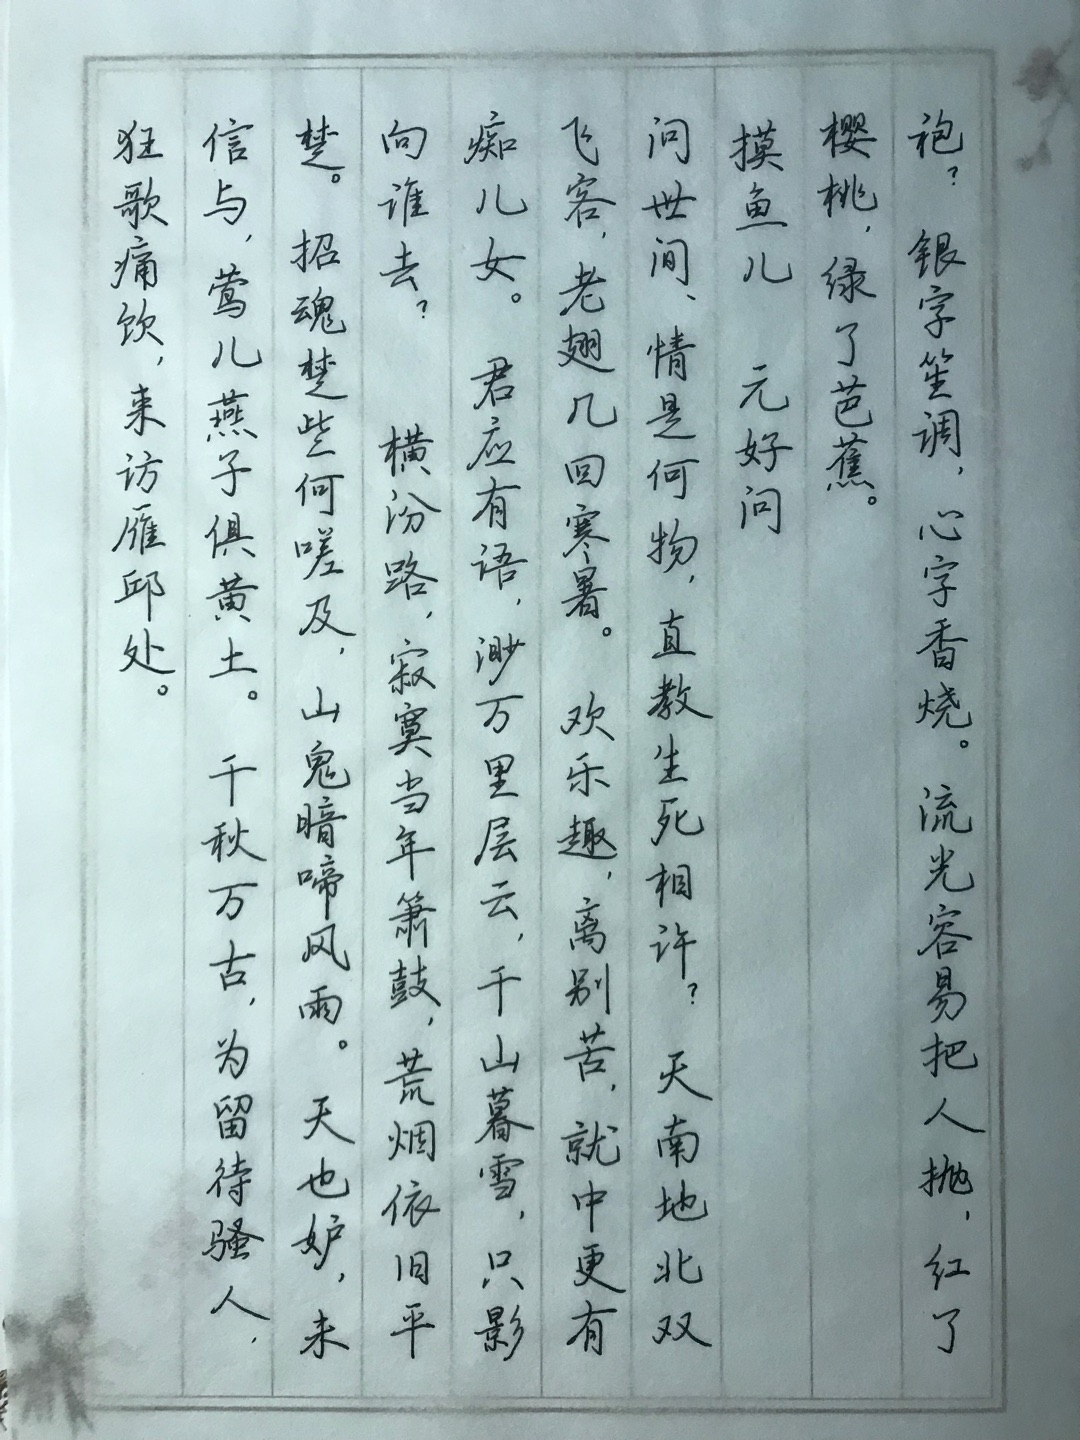 袍？银字笙调，心字香烧。流光容易把人抛，红了
樱桃，绿了芭蕉。
摸鱼儿 元好问
问世间、情是何物，直教生死相许？天南地北双
飞客，老翅几回寒暑。欢乐趣，离别苦，就中更有
痴儿女。君应有语，渺万里层云，千山暮雪，只影
向谁去？ 横汾路，寂寞当年箫鼓，荒烟依旧平
楚。招魂楚些何嗟及，山鬼暗啼风雨。天也妒，未
信与，莺儿燕子俱黄土。千秋万古，为留待骚人，
狂歌痛饮，来访雁邱处。